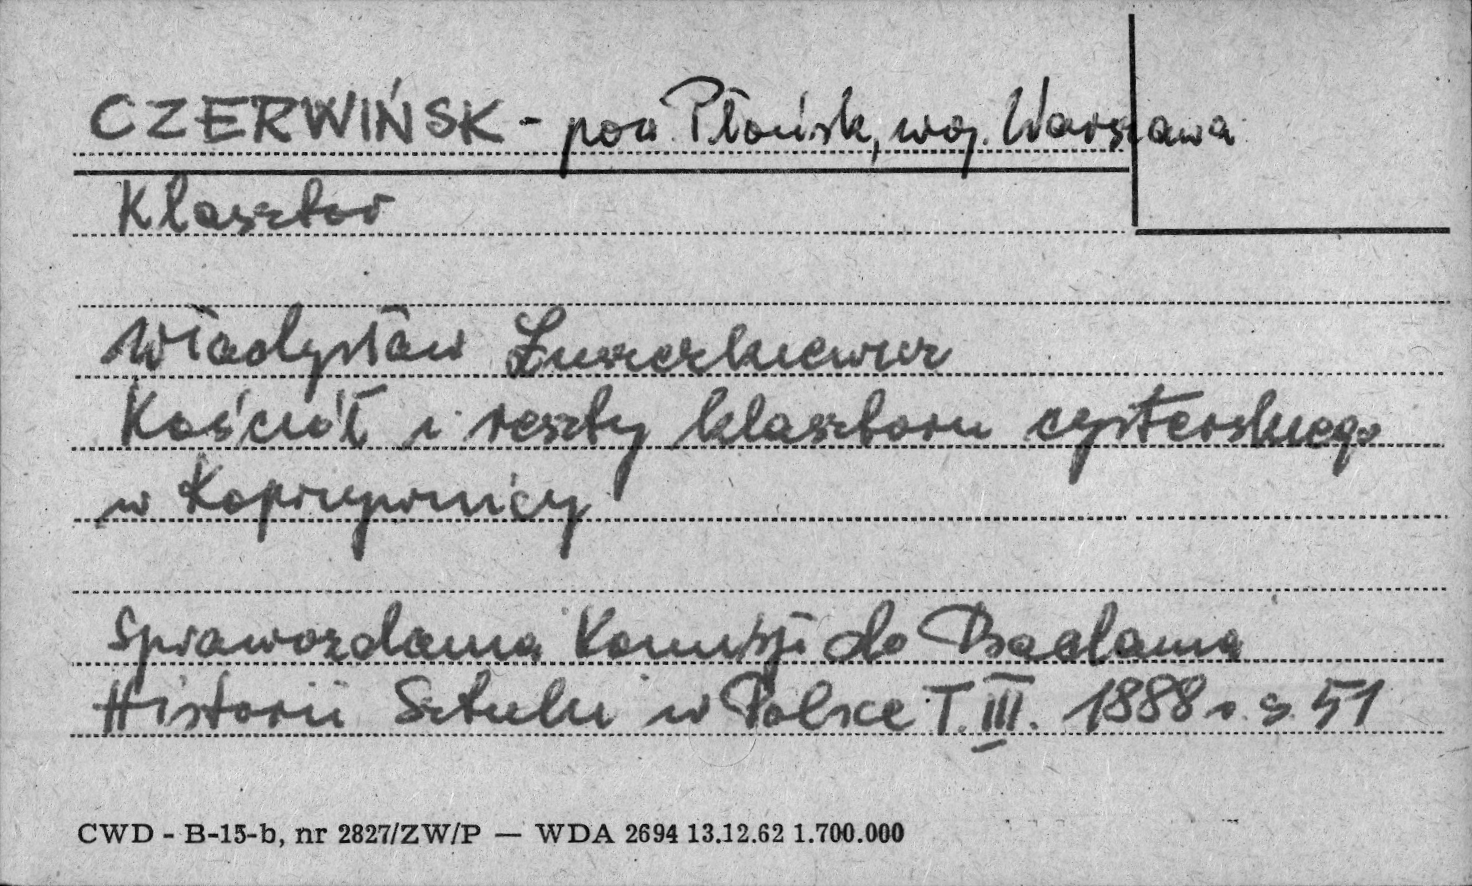 CZERWIŃSK - pow. Płońsk, woj. Warszawa
Klasztor
Władysław Łuszczkiewicz
Kościół i reszty klasztoru cysterskiego
w Koprzywnicy
Sprawozdania Komisji do Badania
Historii Sztuki w Polsce T. III. 1888 r. s. 51
CWD - B-15-b, nr 2827/ZW/P — WDA 2694 13.12.62 1.700.000